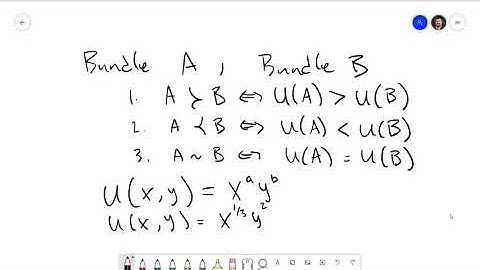 Bundle A , Bundle B
1. A ≻ B ⇔ U(A) > U(B)
2. A ≺ B ⇔ U(A) < U(B)
3. A ~ B ⇔ U(A) = U(B)
U(x,y) = x^a y^b
U(x,y) = x^{1/3} y^2